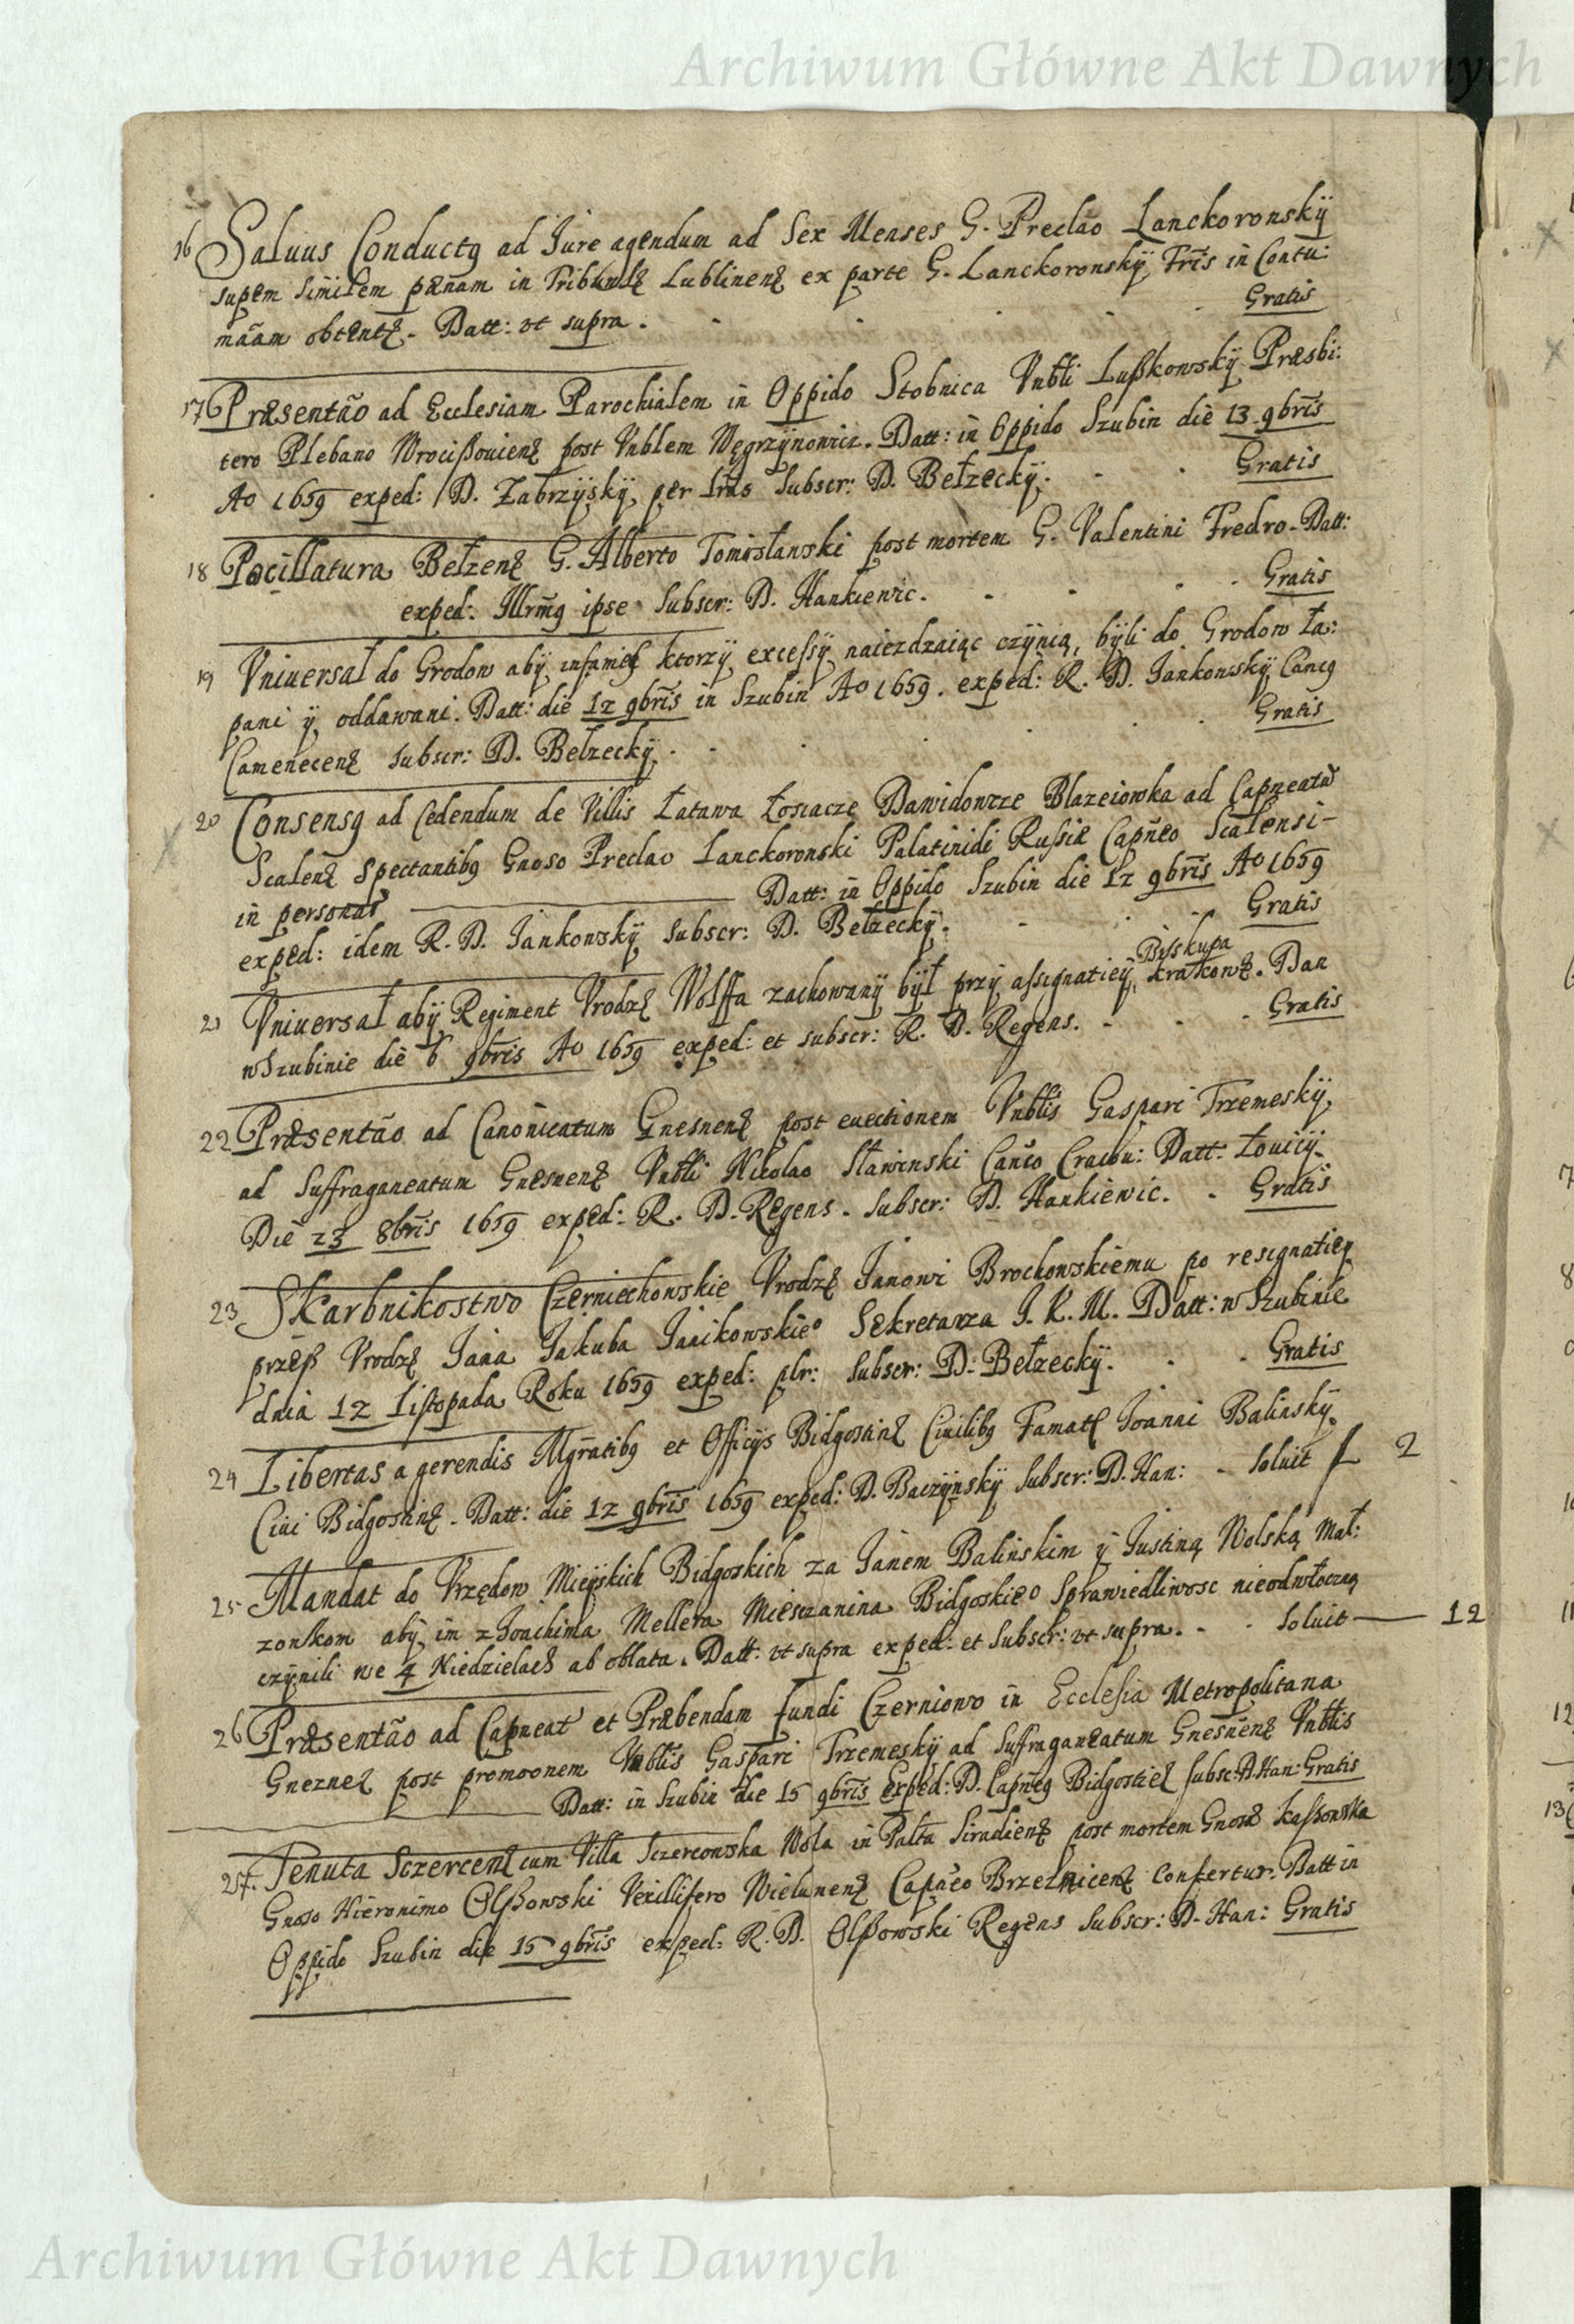 Archiwum Główne Akt Dawnych
16 Saluus Conductg ad Jure agendum ad Sex Menses G. Preclão Lanckoronskÿ
supem similem pænam in Tribunlz Lublinenz ex parte G. Lanckoronskÿ, Frĩs in Contu:
mãam obtentz. Datt: vt supra.
Gratis
17 Præsentão ad Ecclesiam Parochialem in Oppido Stobnica Vnbli Lußkowskÿ Præsbi:
tero Plebano Wrocißouienz post Vnblem Węgrzÿnowicz. Datt: in Oppido Szubin die 13 9brĩs
Ao 1659 exped: D. Zabrzÿskÿ per lrãs Subscr: D. Bełzeckÿ.
Gratis
18 Pocillatura Bełzenz G. Alberto Tomisławski post mortem G. Valentini Fredro. Datt:
exped: Illrmg ipse Subscr: D. Hankiewic.
Gratis
19 Vniuersał do Grodow abÿ infamięs ktorzÿ excessÿ naiezdzaiąc czÿnią, bÿli do Grodow ła:
pani ÿ oddawani. Datt: die 12 9brĩs in Szubin Ao 1659. exped: R. D. Jankowskÿ Cancg
Camenecenz Subscr: D. Bełzeckÿ.
Gratis
20 Consensg ad Cedendum de Villis Łatawa Łosiacze Dawidowcze Blazeiowka ad Capneatũ
Scalenz Spectantibg Gnoso Preclao Lanckoronski Palatinidi Russiæ Capñeo Scalensi-
in personat Datt: in Oppido Szubin die 12 9brĩs Ao 1659
exped: idem R. D. Jankowskÿ Subscr: D. Bełzeckÿ.
Gratis
Bisskupa
21 Vniuersał abÿ Regiment Vrodzz Wolffa zachowanÿ bÿł przÿ assignatieÿ krakowz. Dan
w Szubinie die 6 9brĩs Ao 1659 exped: et subscr: R. D. Regens.
Gratis
22 Præsentão ad Canonicatum Gnesnenz post euectionem Vnblis Gaspari Trzemeskÿ
ad Suffraganeatum Gnesnenz Vnbli Nicolao Sławinski Cañco Cracou: Datt: Łouicÿ.
Die 23 8brĩs 1659 exped: R. D. Regens. Subscr: D. Hankiewic.
Gratis
23 Skarbnikostwo Czerniechowskie Vrodzz Janowi Brochowskiemu po resignatieÿ
przeß Vrodzz Jana Jakuba Janikowskieo Sekretarza J. K. M. Datt: w Szubinie
dnia 12 Listopada Roku 1659 exped: plr: Subscr: D. Bełzeckÿ.
Gratis
24 Libertas a gerendis Mgrãtibg et Officÿs Bidgostinz Ciuilibg Famatz Joanni Balinskÿ
Ciui Bidgostinz. Datt: die 12 9brĩs 1659 exped: D. Baczÿnskÿ Subscr: D. Han: Soluit f 2
25 Mandat do Vrzędow Mieÿskich Bidgoskich za Janem Balinskim ÿ Justiną Wolską mał:
zonkom abÿ im z Joachima Mellera Miesczanina Bidgoskieo Sprawiedliwosc nieodwłoczną
czÿnili we 4 Niedzielach ab oblata. Datt: vt supra exped: et Subscr: vt supra. Soluit 12
26 Præsentão ad Capneat et Præbendam fundi Czerniowo in Ecclesia Metropolitana
Gneznez post promoonem Vnblis Gaspari Trzemeskÿ ad Suffraganeatum Gnesnenz Vnblis
Datt: in Szubin die 15 9brĩs Exped: D. Capñeg Bidgostiez Subsc: D. Han: Gratis
27. Tenuta Sczercenz cum Villa Sczercowska Wola in Paltu Siradienz post mortem Gnosæ Kaßowska
Gnoso Hieronimo Olßowski Vexillifero Wielunenz Capñeo Brzeznicenz Confertur. Datt in
Oppido Szubin die 15 9brĩs exped: R. D. Olßowski Regens Subscr: D. Han: Gratis
Archiwum Główne Akt Dawnych